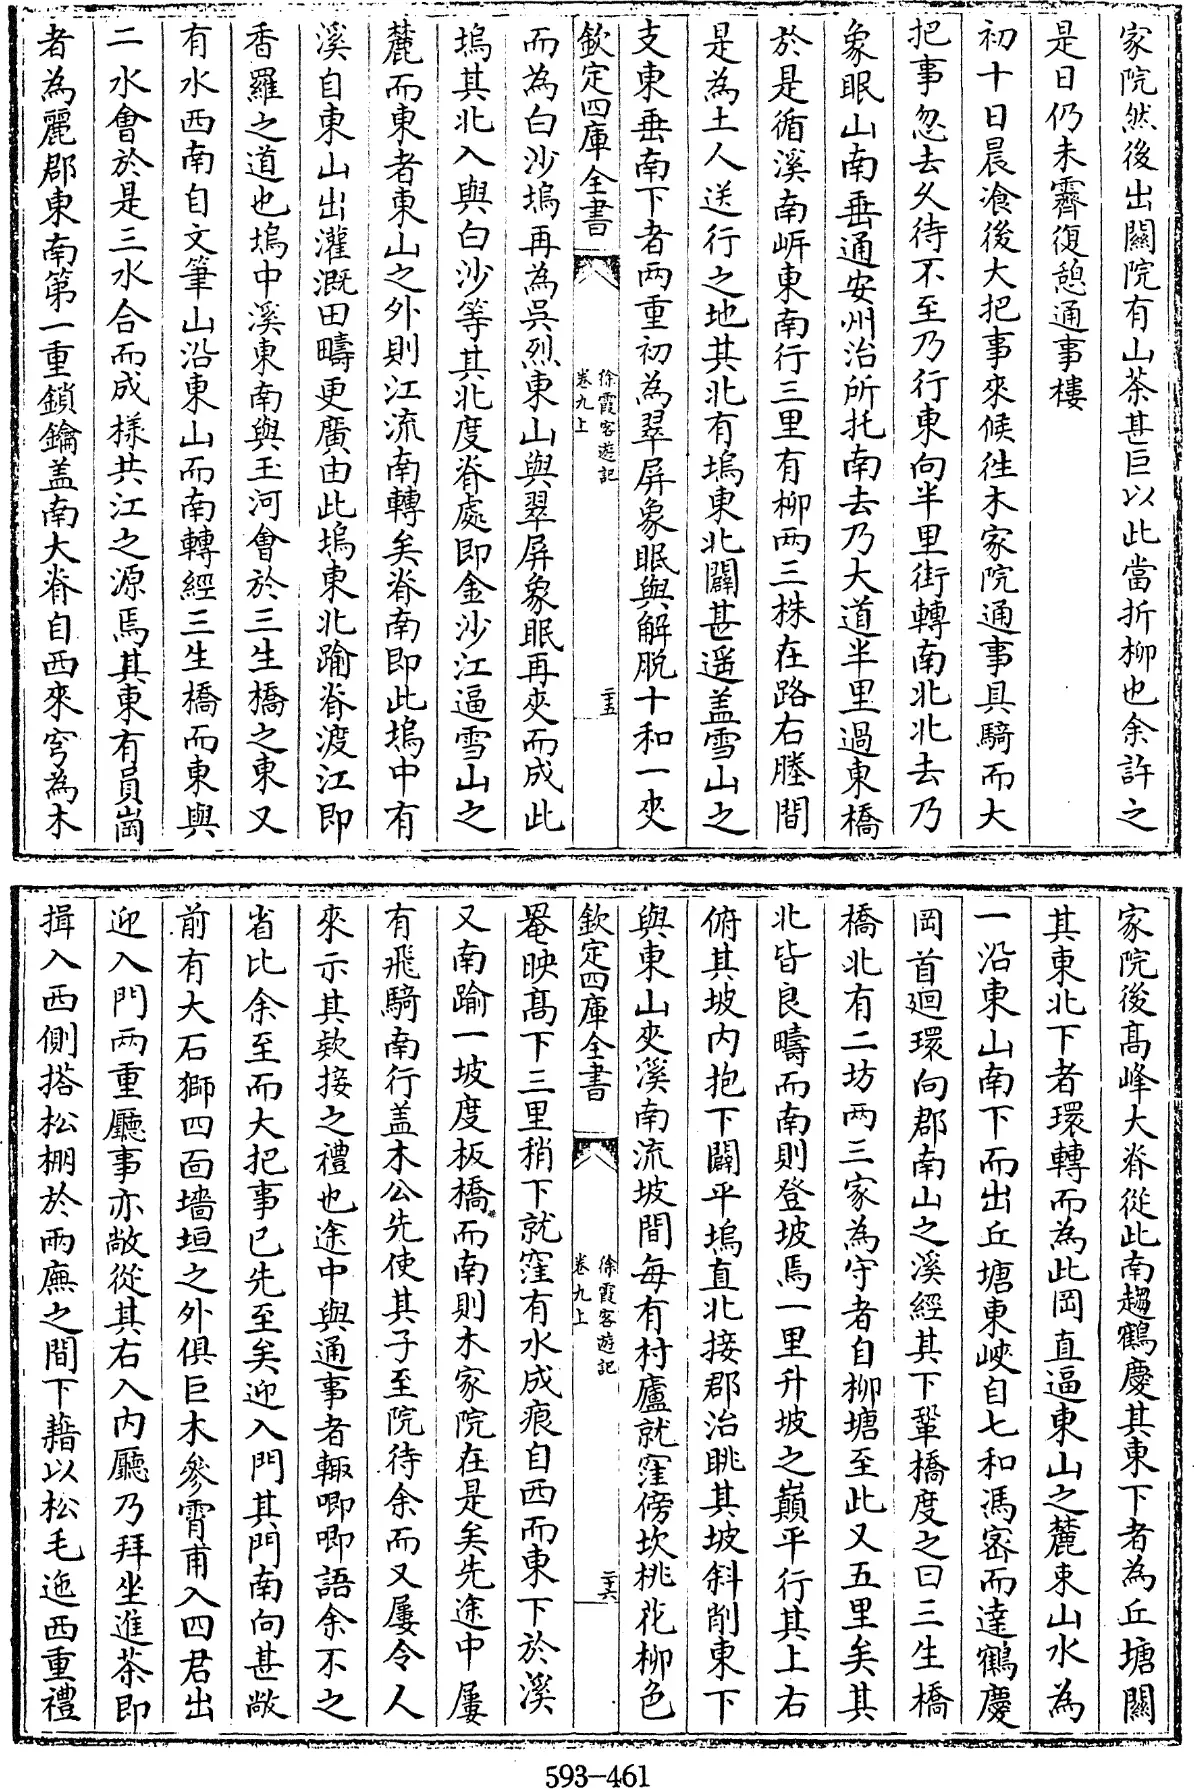 家院然後出關院有山茶甚巨以此當折柳也余許之
是日仍未霽復憩通事樓
初十日晨飡後大把事來候徃木家院通事具騎而大
把事忽去久待不至乃行東向半里街轉南北北去乃
象眠山南垂通安州治所托南去乃大道半里過東橋
於是循溪南岍東南行三里有柳兩三株在路右塍間
是為土人送行之地其北有塢東北闢甚遥盖雪山之
支東垂南下者兩重初為翠屏象眠與解脱十和一夾
欽定四庫全書
徐霞客遊記
卷九上
二十五
而為白沙塢再為吳烈東山與翠屏象眠再夾而成此
塢其北入與白沙等其北度脊處即金沙江逼雪山之
麓而東者東山之外則江流南轉矣脊南即此塢中有
溪自東山出灌溉田疇更廣由此塢東北踰脊渡江即
香羅之道也塢中溪東南與玉河會於三生橋之東又
有水西南自文筆山沿東山而南轉經三生橋而東與
二水會於是三水合而成樣共江之源焉其東有員崗
者為麗郡東南第一重鎖鑰盖南大脊自西來穹為木
家院後髙峰大脊從此南趨鶴慶其東下者為丘塘關
其東北下者環轉而為此岡直逼東山之麓東山水為
一沿東山南下而出丘塘東峽自七和馮密而達鶴慶
岡首迴環向郡南山之溪經其下鞏橋度之曰三生橋
橋北有二坊兩三家為守者自柳塘至此又五里矣其
北皆良疇而南則登坡焉一里升坡之巔平行其上右
俯其坡内抱下闢平塢直北接郡治眺其坡斜削東下
與東山夾溪南流坡間每有村廬就窪傍坎桃花柳色
欽定四庫全書
徐霞客遊記
卷九上
二十六
罨映髙下三里稍下就窪有水成痕自西而東下於溪
又南踰一坡度板橋而南則木家院在是矣先途中屢
有飛騎南行盖木公先使其子至院待余而又屢令人
來示其欵接之禮也途中與通事者輙唧唧語余不之
省比余至而大把事已先至矣迎入門其門南向甚敞
前有大石獅四面墻垣之外俱巨木參霄甫入四君出
迎入門兩重廳事亦敞從其右入内廳乃拜坐進茶即
揖入西側搭松棚於兩廡之間下藉以松毛迤西重禮
593-461